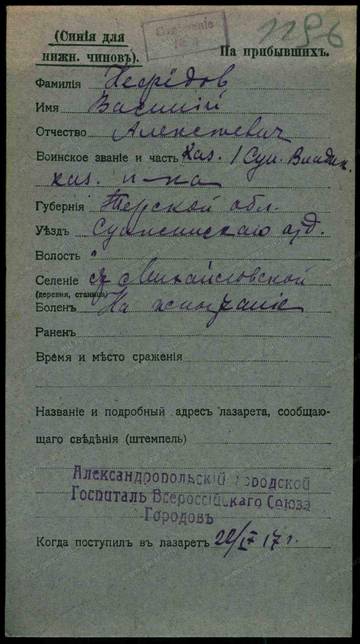 1296
(Синія для
нижн. чиновъ).
На прибывшихъ.
Фамилія Нефёдов
Имя Василій
Отчество Алексѣевич
Воинское званіе и часть Каз. 1 Сун. Владик.
каз. п-ка
Губернія Терской обл.
Уѣздъ Сунженскаго отд.
Волость "
Селеніе ст. Михайловской
(деревня, станица)
Боленъ На испытание
Раненъ
Время и мѣсто сраженія
Названіе и подробный адресъ лазарета, сообщаю-
щаго свѣдѣнія (штемпель)
Александропольскій Городской
Госпиталь Всероссійскаго Союза
Городовъ
Когда поступилъ въ лазаретъ 22/IV 17 г.